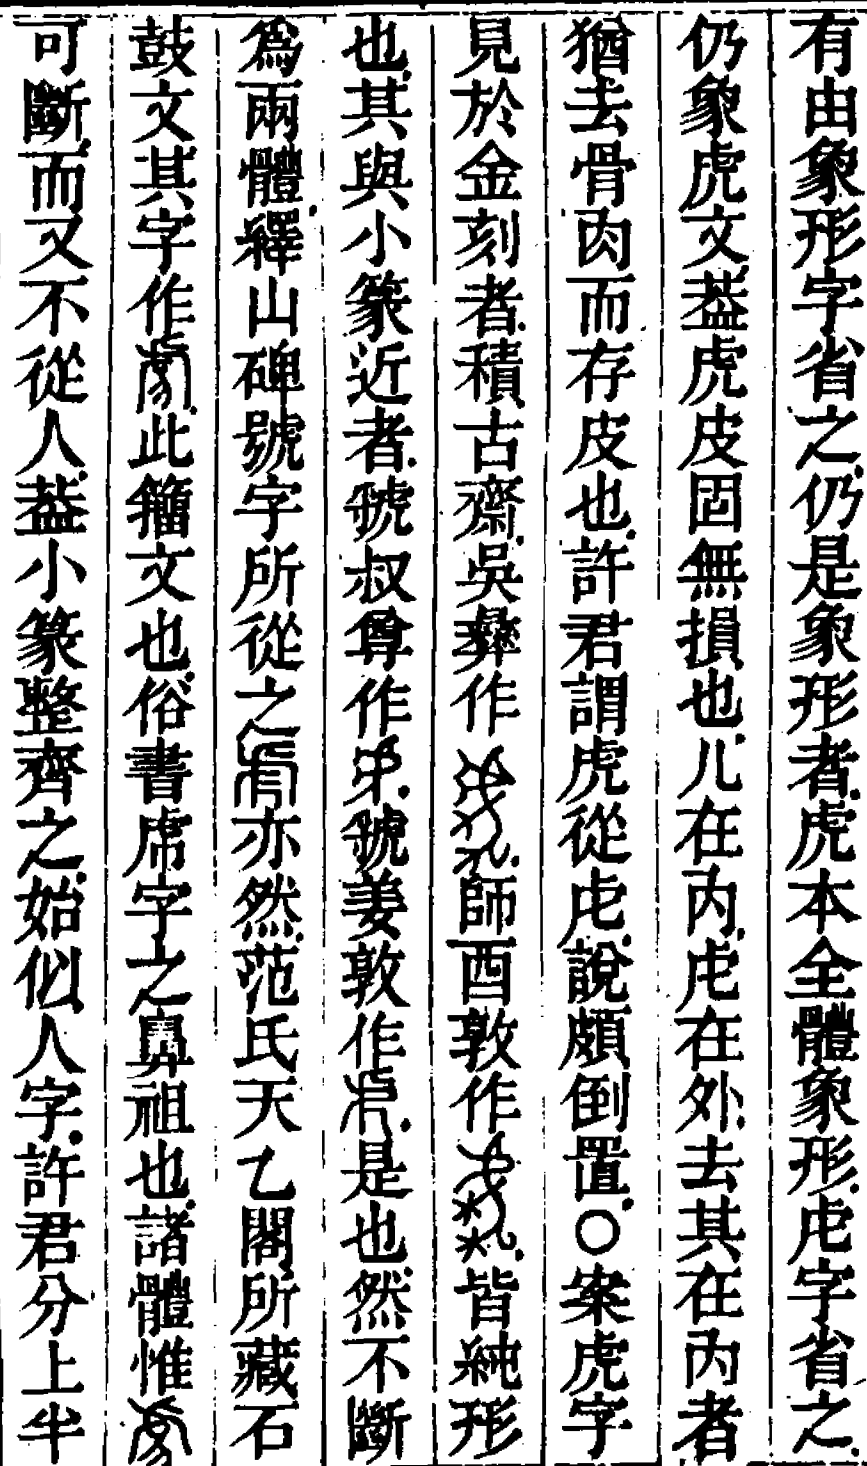 有由象形字省之仍是象形者虎本全體象形虍字省之
仍象虎文葢虎皮固無損也儿在内虍在外去其在内者
猶去骨肉而存皮也許君謂虎從虍說顛倒置〇案虎字
見於金刻者積古齋吳彝作師酉敦作皆純形
也其與小篆近者虢叔尊作虢姜敦作是也然不斷
爲兩體繹山碑號字所從之亦然范氏天乙閣所藏石
鼓文其字作此籀文也俗書虎字之鼻祖也諸體惟
可斷而又不從人葢小篆整齊之始佀人字許君分上半